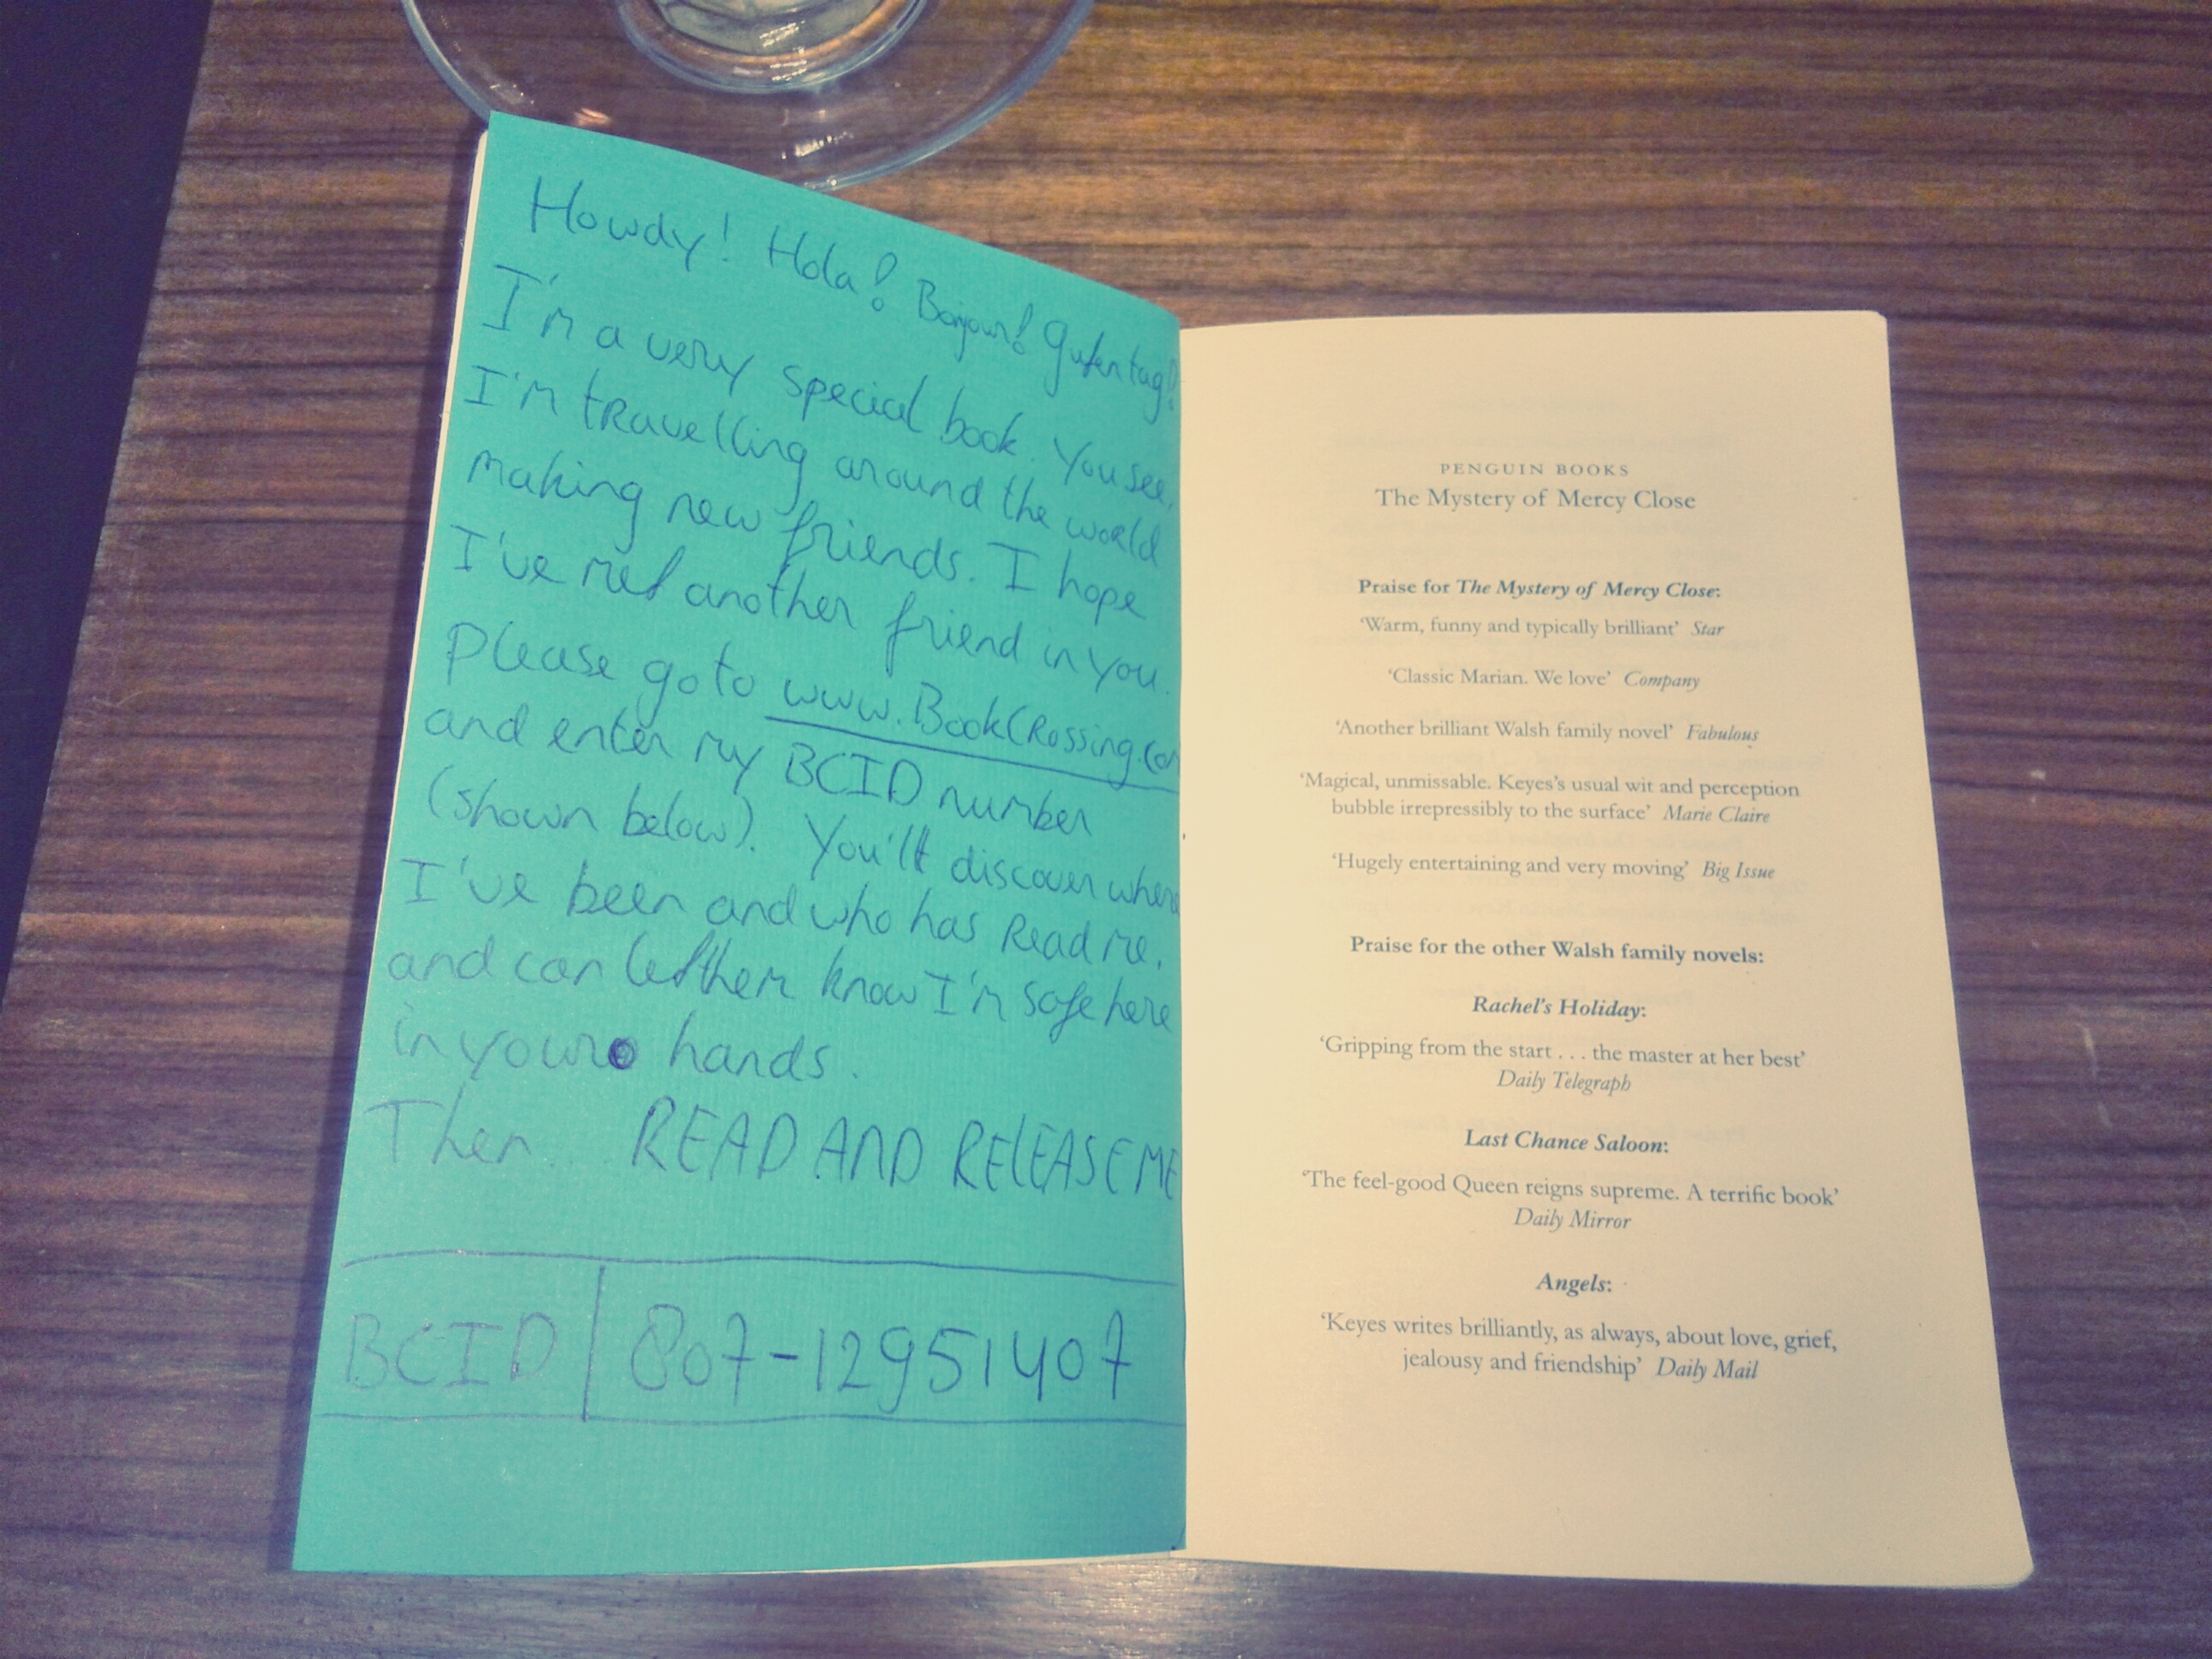 Howdy! Hola! Bonjour! Guten tag!
I'm a very special book. You see,
I'm travelling around the world
making new friends. I hope
I've met another friend in you.
Please go to www.BookCRossing.com
and enter my BCID number
(shown below). You'll discover where
I've been and who has Read me,
and can let them know I'm safe here
in your hands.
Then... READ AND RELEASE ME
BCID 807-12951407
PENGUIN BOOKS
The Mystery of Mercy Close
Praise for The Mystery of Mercy Close:
‘Warm, funny and typically brilliant’ Star
‘Classic Marian. We love’ Company
‘Another brilliant Walsh family novel’ Fabulous
‘Magical, unmissable. Keyes’s usual wit and perception
bubble irrepressibly to the surface’ Marie Claire
‘Hugely entertaining and very moving’ Big Issue
Praise for the other Walsh family novels:
Rachel’s Holiday:
‘Gripping from the start . . . the master at her best’
Daily Telegraph
Last Chance Saloon:
‘The feel-good Queen reigns supreme. A terrific book’
Daily Mirror
Angels:
‘Keyes writes brilliantly, as always, about love, grief,
jealousy and friendship’ Daily Mail